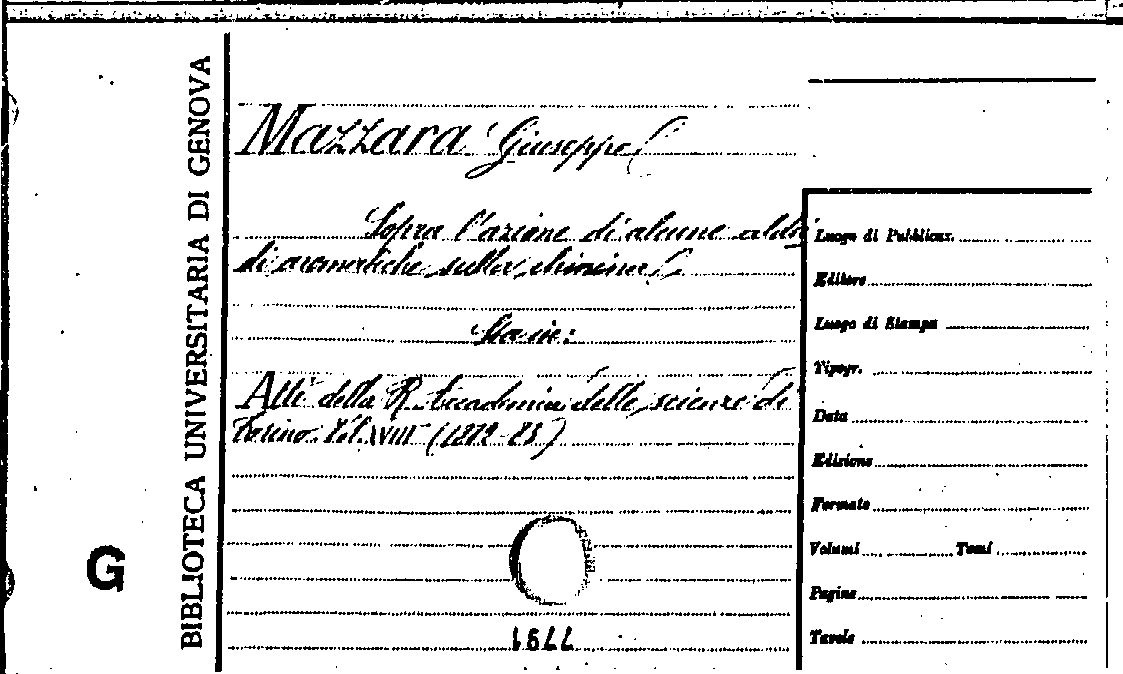 BIBLIOTECA UNIVERSITARIA DI GENOVA
G
Mazzara Giuseppe
Sopra l'azione di alcune aldei
di aromatiche sulla chinina
Sta in:
Atti della R. Accademia delle scienze di
Torino. Vol. XVIII (1882-83)
7791
Luogo di Pubblicaz.
Editore
Luogo di Stampa
Tipogr.
Data
Edizione
Formato
Volumi Tomi
Pagine
Tavole